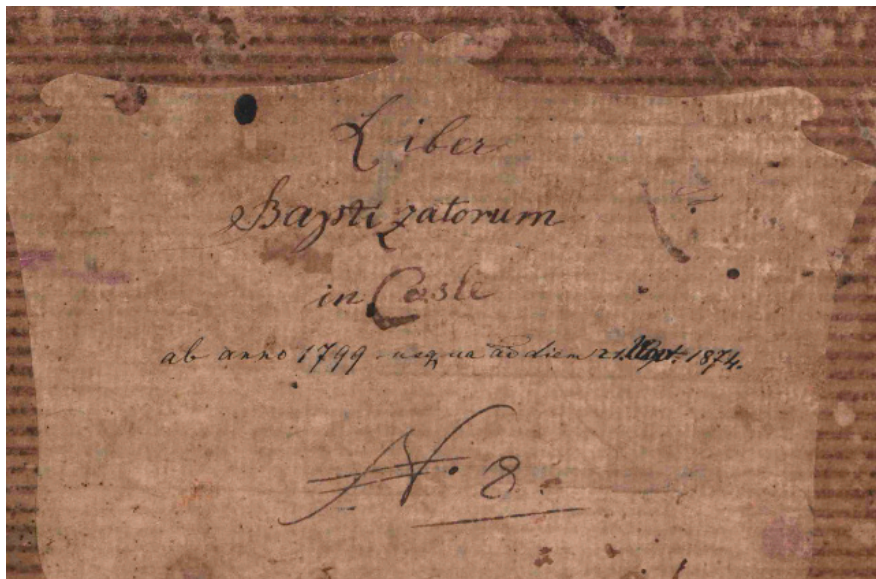 Liber
Baptizatorum
in Cosle
ab anno 1799 usque ad diem 21. Sept. 1874.
N. 8.